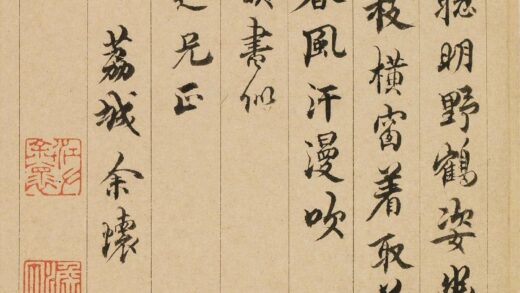 聰明野鶴姿
枝橫窗着取
春風汗漫吹
書似
兄正
荔城余壞